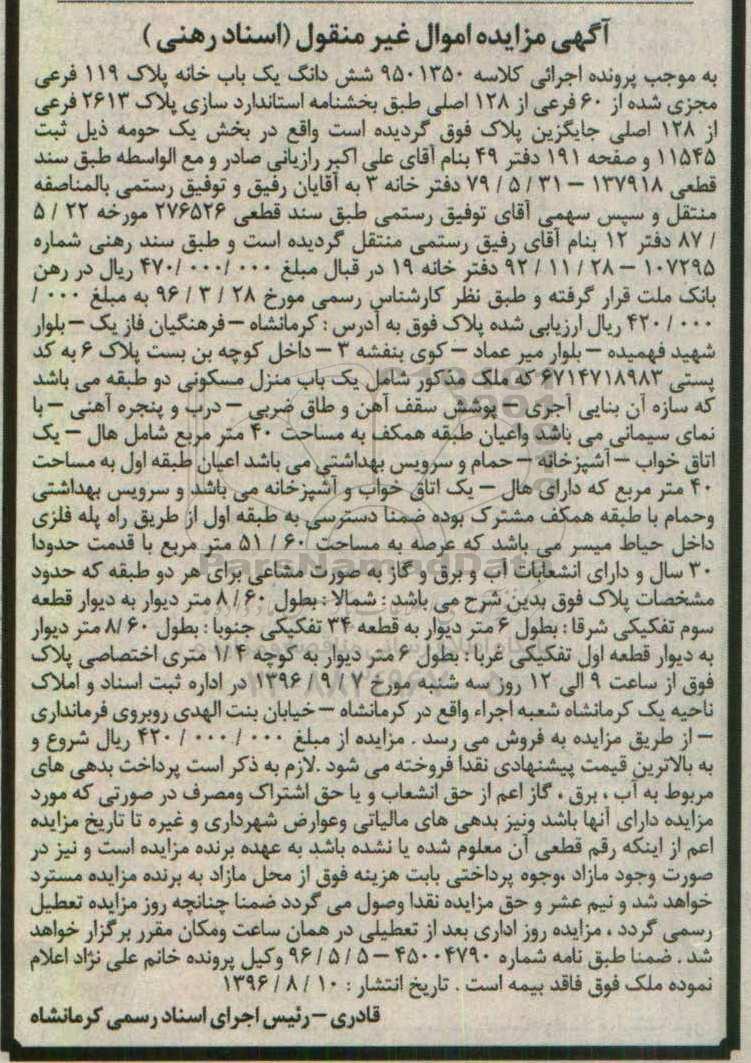 آگهی مزایده اموال غیر منقول (اسناد رهنی)
به موجب پرونده اجرائی کلاسه ۹۵۰۱۳۵۰ شش دانگ یک باب خانه پلاک ۱۱۹ فرعی
مجزی شده از ۶۰ فرعی از ۱۲۸ اصلی طبق بخشنامه استاندارد سازی پلاک ۲۶۱۳ فرعی
از ۱۲۸ اصلی جایگزین پلاک فوق گردیده است واقع در بخش یک حومه ذیل ثبت
۱۱۵۴۵ و صفحه ۱۹۱ دفتر ۴۹ بنام آقای علی اکبر رازیانی صادر و مع الواسطه طبق سند
قطعی ۱۳۷۹۱۸ – ۳۱ / ۵ / ۷۹ دفتر خانه ۳ به آقایان رفیق و توفیق رستمی بالمناصفه
منتقل و سپس سهمی آقای توفیق رستمی طبق سند قطعی ۲۷۶۵۲۶ مورخه ۲۲ / ۵
/ ۸۷ دفتر ۱۲ بنام آقای رفیق رستمی منتقل گردیده است و طبق سند رهنی شماره
۱۰۷۲۹۵ – ۲۸ / ۱۱ / ۹۲ دفتر خانه ۱۹ در قبال مبلغ ۰۰۰ /۰۰۰ /۴۷۰ ریال در رهن
بانک ملت قرار گرفته و طبق نظر کارشناس رسمی مورخ ۲۸ / ۳ / ۹۶ به مبلغ ۰۰۰ /
۰۰۰ / ۴۲۰ ریال ارزیابی شده پلاک فوق به آدرس : کرمانشاه – فرهنگیان فاز یک – بلوار
شهید فهمیده – بلوار میر عماد – کوی بنفشه ۳ – داخل کوچه بن بست پلاک ۶ به کد
پستی ۶۷۱۴۷۱۸۹۸۳ که ملک مذکور شامل یک باب منزل مسکونی دو طبقه می باشد
که سازه آن بنایی آجری – پوشش سقف آهن و طاق ضربی – درب و پنجره آهنی – با
نمای سیمانی می باشد واعیان طبقه همکف به مساحت ۴۰ متر مربع شامل هال – یک
اتاق خواب – آشپزخانه – حمام و سرویس بهداشتی می باشد اعیان طبقه اول به مساحت
۴۰ متر مربع که دارای هال – یک اتاق خواب و آشپزخانه می باشد و سرویس بهداشتی
وحمام با طبقه همکف مشترک بوده ضمنا دسترسی به طبقه اول از طریق راه پله فلزی
داخل حیاط میسر می باشد که عرصه به مساحت ۶۰ / ۵۱ متر مربع با قدمت حدودا
۳۰ سال و دارای انشعابات آب و برق و گاز به صورت مشاعی برای هر دو طبقه که حدود
مشخصات پلاک فوق بدین شرح می باشد : شمالا : بطول ۶۰ / ۸ متر دیوار به دیوار قطعه
سوم تفکیکی شرقا : بطول ۶ متر دیوار به قطعه ۳۴ تفکیکی جنوبا : بطول ۶۰ /۸ متر دیوار
به دیوار قطعه اول تفکیکی غربا : بطول ۶ متر دیوار به کوچه ۴ /۱ متری اختصاصی پلاک
فوق از ساعت ۹ الی ۱۲ روز سه شنبه مورخ ۷ / ۹ / ۱۳۹۶ در اداره ثبت اسناد و املاک
ناحیه یک کرمانشاه شعبه اجراء واقع در کرمانشاه – خیابان بنت الهدی روبروی فرمانداری
– از طریق مزایده به فروش می رسد . مزایده از مبلغ ۰۰۰ / ۰۰۰ / ۴۲۰ ریال شروع و
به بالاترین قیمت پیشنهادی نقدا فروخته می شود .لازم به ذکر است پرداخت بدهی های
مربوط به آب ، برق ، گاز اعم از حق انشعاب و یا حق اشتراک ومصرف در صورتی که مورد
مزایده دارای آنها باشد ونیز بدهی های مالیاتی وعوارض شهرداری و غیره تا تاریخ مزایده
اعم از اینکه رقم قطعی آن معلوم شده یا نشده باشد به عهده برنده مزایده است و نیز در
صورت وجود مازاد ،وجوه پرداختی بابت هزینه فوق از محل مازاد به برنده مزایده مسترد
خواهد شد و نیم عشر و حق مزایده نقدا وصول می گردد ضمنا چنانچه روز مزایده تعطیل
رسمی گردد ، مزایده روز اداری بعد از تعطیلی در همان ساعت ومکان مقرر برگزار خواهد
شد . ضمنا طبق نامه شماره ۴۵۰۰۴۷۹۰ – ۵ / ۵ / ۹۶ وکیل پرونده خانم علی نژاد اعلام
نموده ملک فوق فاقد بیمه است . تاریخ انتشار : ۱۰ / ۸ / ۱۳۹۶
قادری – رئیس اجرای اسناد رسمی کرمانشاه
ParsNamadData